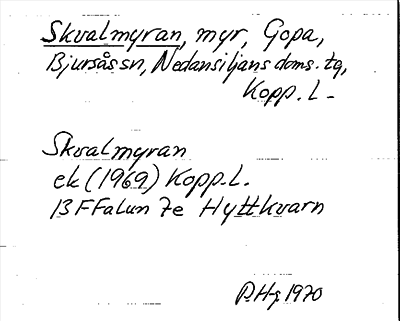 Skvalmyran, myr, Gopa,
Bjursås sn, Nedansiljans doms. tg,
Kopp. l.
Skvalmyran
ek (1969) Kopp. l.
13 F Falun 7e Hyttkvarn
P.H-g 1970